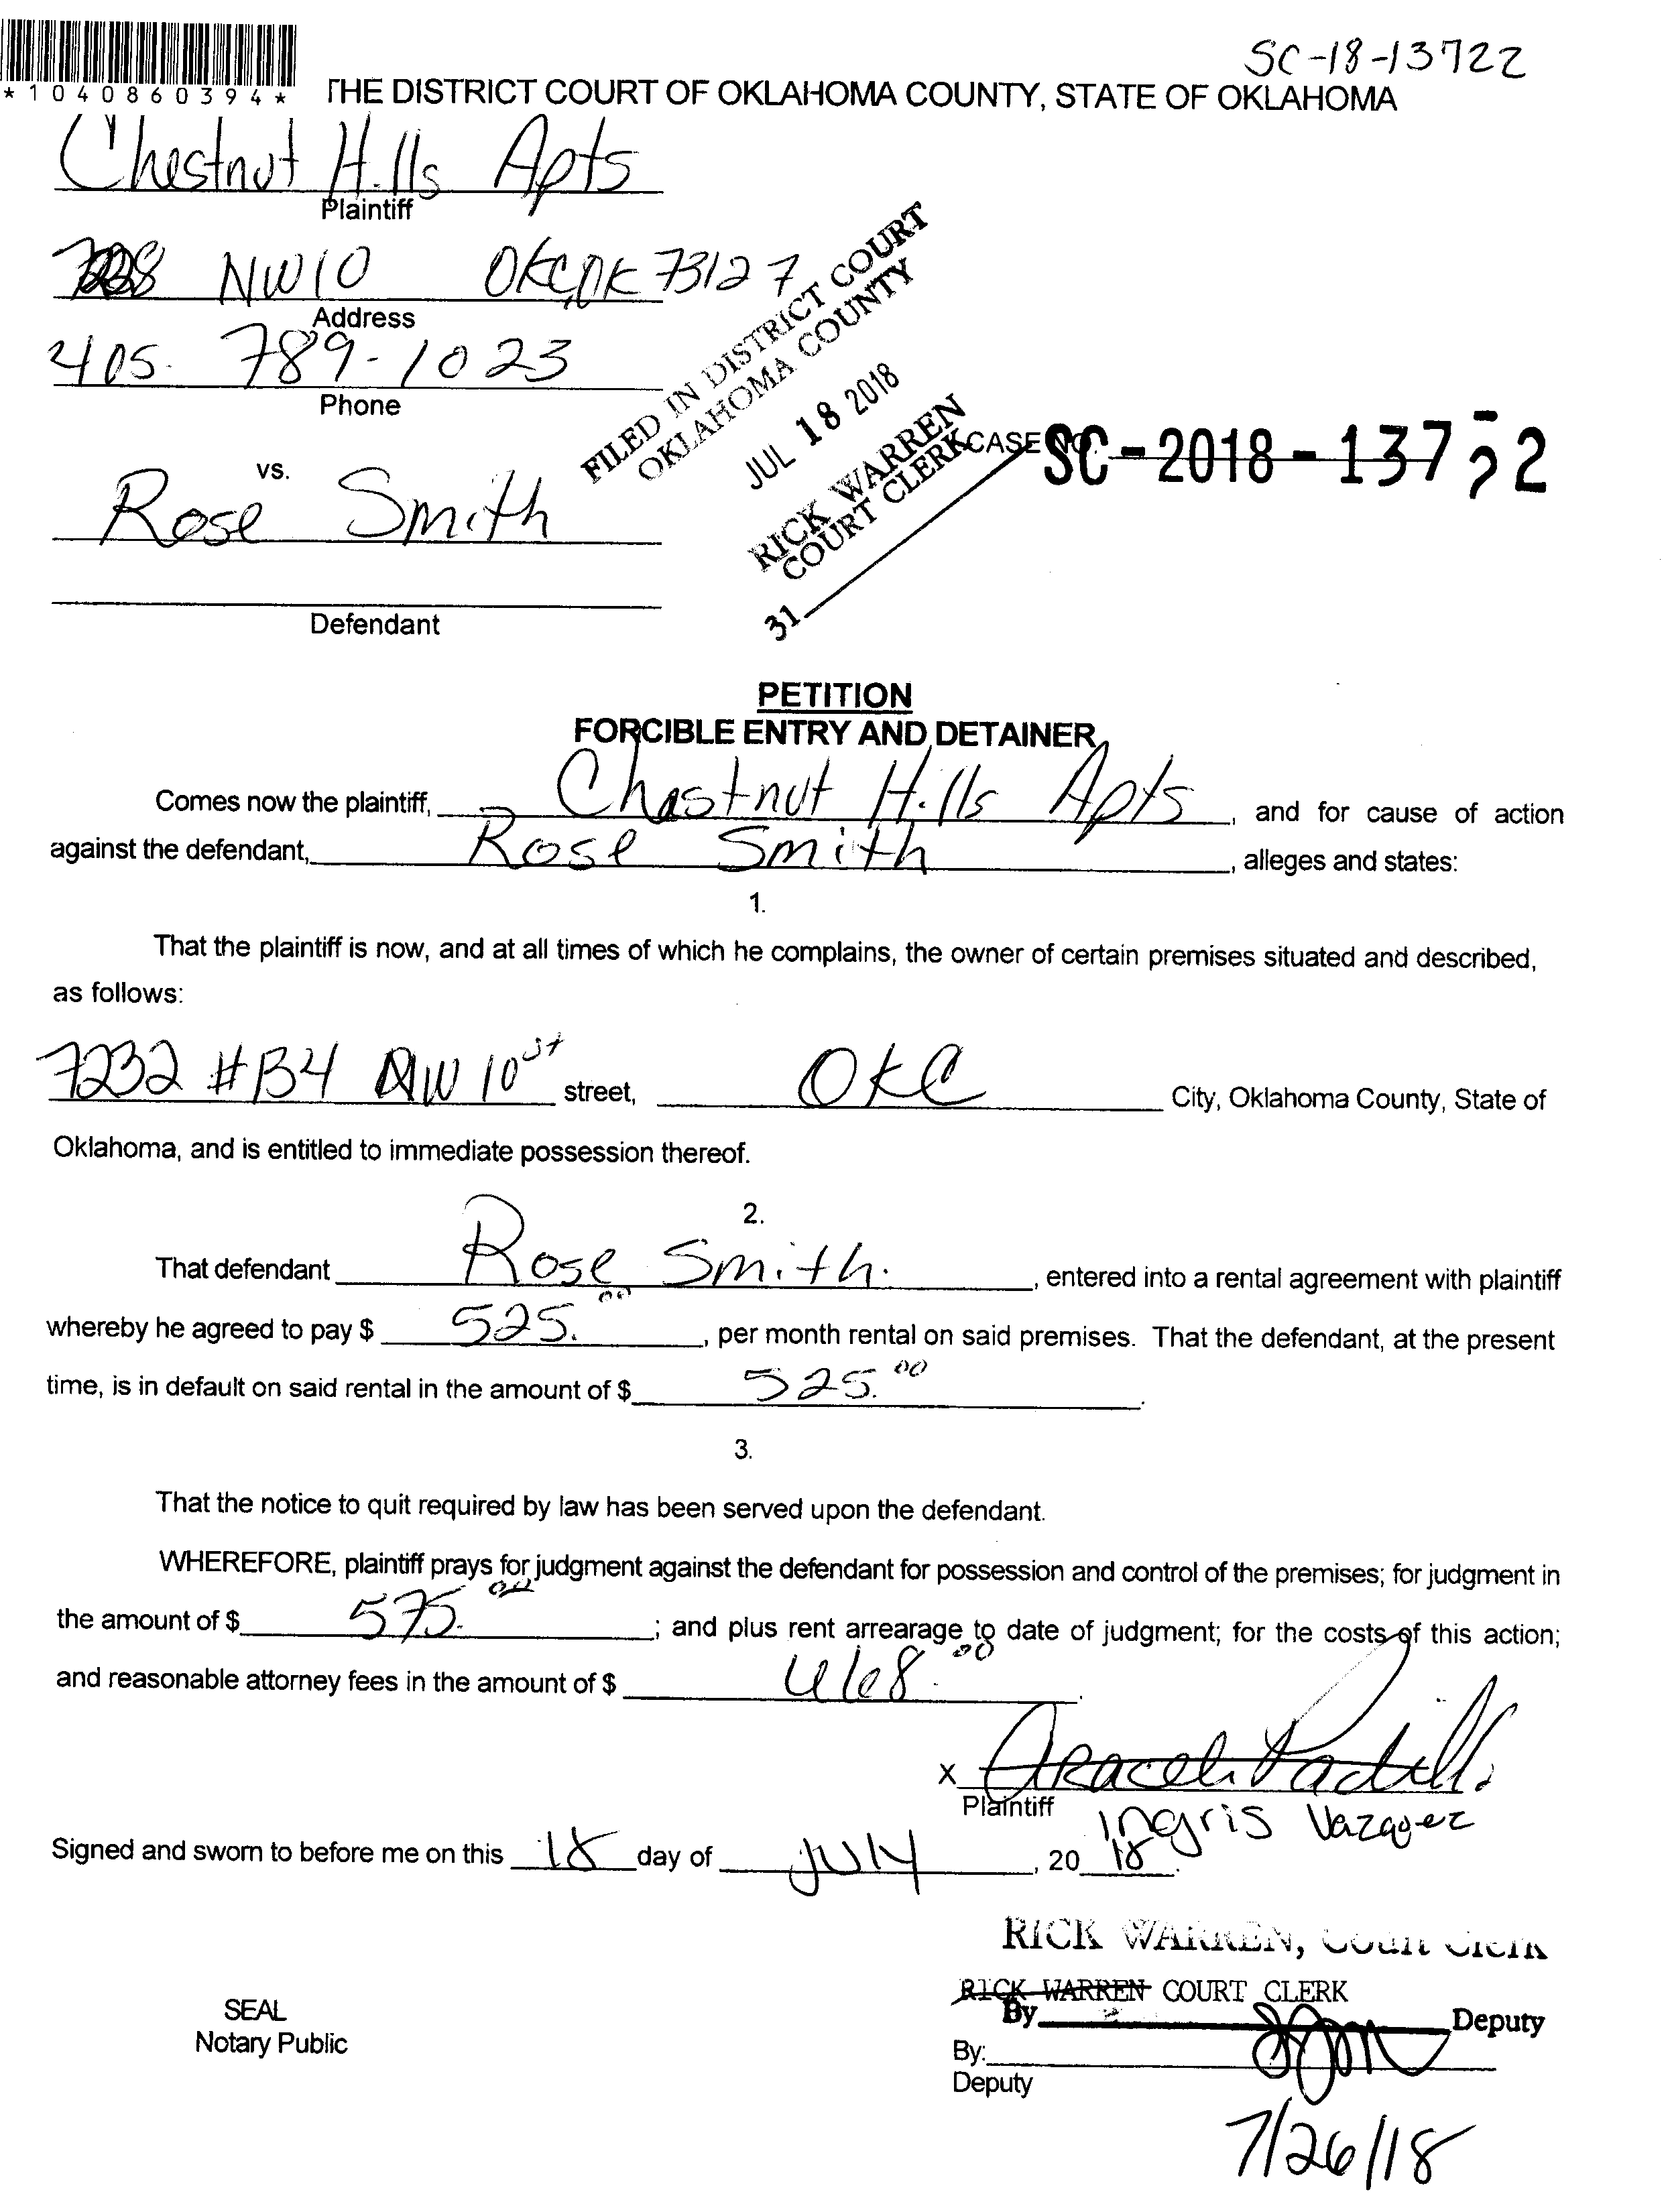 SC-18-13722
*1040860394*
THE DISTRICT COURT OF OKLAHOMA COUNTY, STATE OF OKLAHOMA
Chestnut Hills Apts
Plaintiff
NW 10 OKC, OK 73127
Address
405. 789-1023
Phone
FILED IN DISTRICT COURT
OKLAHOMA COUNTY
JUL 18 2018
RICK WARREN
COURT CLERK
31
CASE NO. SC-2018-13722
vs.
Rose Smith
Defendant
PETITION
FORCIBLE ENTRY AND DETAINER
Comes now the plaintiff, Chestnut Hills Apts, and for cause of action
against the defendant, Rose Smith, alleges and states:
1.
That the plaintiff is now, and at all times of which he complains, the owner of certain premises situated and described,
as follows:
7232 #B4 NW 10 st street, OKC City, Oklahoma County, State of
Oklahoma, and is entitled to immediate possession thereof.
2.
That defendant Rose Smith, entered into a rental agreement with plaintiff
whereby he agreed to pay $ 525.00, per month rental on said premises. That the defendant, at the present
time, is in default on said rental in the amount of $ 525.00.
3.
That the notice to quit required by law has been served upon the defendant.
WHEREFORE, plaintiff prays for judgment against the defendant for possession and control of the premises; for judgment in
the amount of $ 575.00; and plus rent arrearage to date of judgment; for the costs of this action;
and reasonable attorney fees in the amount of $ .00.
X Araceli Padilla
Plaintiff
Ingris Vazquez
Signed and sworn to before me on this 18 day of July, 2018.
RICK WARREN, Court Clerk
RICK WARREN COURT CLERK
By Deputy
SEAL
Notary Public
By:
Deputy
7/26/18